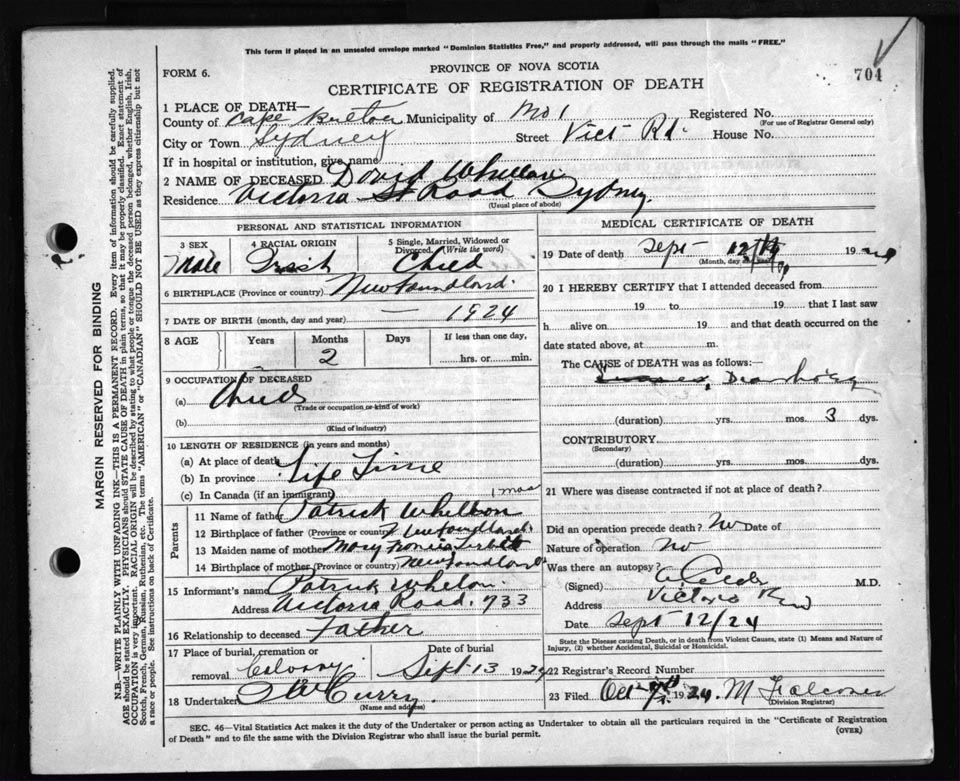 This form if placed in an unsealed envelope marked "Dominion Statistics Free," and properly addressed, will pass through the mails "FREE."
704
PROVINCE OF NOVA SCOTIA
FORM 6.
CERTIFICATE OF REGISTRATION OF DEATH
1 PLACE OF DEATH—
County of Cape Breton Municipality of No 1 Registered No.
(For use of Registrar General only)
City or Town Sydney Street Vict- Rd. House No.
If in hospital or institution, give name
2 NAME OF DECEASED David
Residence Victoria St Road Sydney.
(Usual place of abode)
PERSONAL AND STATISTICAL INFORMATION
3 SEX
Male
4 RACIAL ORIGIN
Irish
5 Single, Married, Widowed or Divorced. (Write the word)
Child
6 BIRTHPLACE (Province or country) Newfoundland.
7 DATE OF BIRTH (month, day and year) — 1924
8 AGE Years Months Days If less than one day,
2 hrs. or min.
9 OCCUPATION OF DECEASED
(a) Child
(Trade or occupation or kind of work)
(b)
(Kind of industry)
10 LENGTH OF RESIDENCE (in years and months)
(a) At place of death
(b) In province Life Time
(c) In Canada (if an immigrant) 1 mos
Parents
11 Name of father Patrick
12 Birthplace of father (Province or country) Newfoundland.
13 Maiden name of mother Mary
14 Birthplace of mother (Province or country) Newfoundland
15 Informant's name Patrick Whelan.
Address Victoria Road. 733
16 Relationship to deceased Father
17 Place of burial, cremation or removal Date of burial
Sept. 13 1924
18 Undertaker Curry
(Name and address)
MEDICAL CERTIFICATE OF DEATH
19 Date of death Sept- 12/ 1924
(Month, day and year)
20 I HEREBY CERTIFY that I attended deceased from
19 to 19 that I last saw
h alive on 19 and that death occurred on the
date stated above, at m.
The CAUSE of DEATH was as follows:—
(duration) yrs. mos. 3 dys.
CONTRIBUTORY
(Secondary)
(duration) yrs. mos. dys.
21 Where was disease contracted if not at place of death?
Did an operation precede death? No Date of
Nature of operation no
Was there an autopsy?
(Signed) M.D.
Address Victoria
Sept 12/24
State the Disease causing Death, or in death from Violent Causes, state (1) Means and Nature of Injury, (2) whether Accidental, Suicidal or Homicidal.
22 Registrar's Record Number
23 Filed Oct 1924. M Falconer
(Division Registrar)
SEC. 46—Vital Statistics Act makes it the duty of the Undertaker or person acting as Undertaker to obtain all the particulars required in the "Certificate of Registration
of Death" and to file the same with the Division Registrar who shall issue the burial permit. (OVER)
MARGIN RESERVED FOR BINDING
N.B.—WRITE PLAINLY WITH UNFADING INK—THIS IS A PERMANENT RECORD. Every item of information should be carefully supplied.
AGE should be stated EXACTLY. PHYSICIANS should STATE CAUSE OF DEATH in plain terms, so that it may be properly classified. Exact statement of
OCCUPATION is very important. RACIAL ORIGIN will be described by stating to what people or tongue the deceased person belonged, whether English, Irish,
Scotch, French, German, Russian, Ruthenian, etc. The terms "AMERICAN" or "CANADIAN" SHOULD NOT BE USED as they express citizenship but not
a race or people. See instructions on back of Certificate.